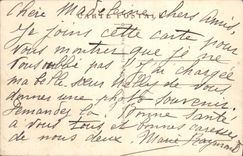 Chère Madeleine, chers Amis,
CARTE POSTALE
Je joins cette carte pour
vous montrer que je ne
vous oublie pas j'ai chargée
ma belle soeur Molly de vous
donner une photo souvenir.
Demandez la. Bonne santé
a vous tous et bonnes caresses
de nous deux. Marie Raymond